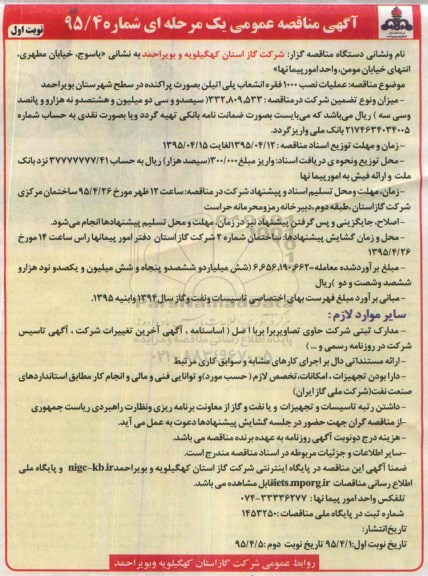 آگهی مناقصه عمومی یک مرحله ای شماره ۹۵/۴
نوبت اول
نام ونشانی دستگاه مناقصه گزار: شرکت گاز استان کهگیلویه و بویراحمد به نشانی «یاسوج، خیابان مطهری،
انتهای خیابان مومن، واحد امور پیمانها»
موضوع مناقصه: عملیات نصب ۱۰۰۰ فقره انشعاب پلی اتیلن بصورت پراکنده در سطح شهرستان بویراحمد
- میزان ونوع تضمین شرکت در مناقصه: ۳۳۲,۸۰۹,۵۳۳( سیصدو و سی دو میلیون و هشتصدو نه هزارو و پانصد
وسی سه ) ریال می‌باشد که می‌بایست بصورت ضمانت نامه بانکی تهیه گردد ویا بصورت نقدی به حساب شماره
۲۱۷۴۶۳۴۰۳۴۰۰۵ بانک ملی واریز گردد.
- زمان و مهلت توزیع اسناد مناقصه : ۱۳۹۵/۰۴/۱۲ لغایت ۱۳۹۵/۰۴/۱۵
- محل توزیع ونحوه ی دریافت اسناد: واریز مبلغ ۳۰۰/۰۰۰(سیصد هزار) ریال به حساب ۳۷۷۷۷۷۷۷/۴۱ نزد بانک
ملت و ارائه فیش به امور پیمانها
- زمان، مهلت ومحل تسلیم اسناد و پیشنهاد شرکت در مناقصه: ساعت ۱۲ ظهر مورخ ۹۵/۴/۲۶ ساختمان مرکزی
شرکت گاز استان، طبقه دوم، دبیرخانه رمزومحرمانه حراست
- اصلاح، جایگزینی و پس گرفتن پیشنهاد نیز در زمان، مهلت و محل تسلیم پیشنهادها انجام می‌شود.
- محل و زمان گشایش پیشنهادها: ساختمان شماره ۲ شرکت گاز استان دفتر امور پیمانها راس ساعت ۱۴ مورخ
۱۳۹۵/۴/۲۶
- مبلغ برآوردشده معامله- ۶,۶۵۶,۱۹۰,۶۶۲ (شش میلیاردو ششصدو پنجاه و شش میلیون و یکصدو نود هزارو
ششصد وشصت و دو )ریال
- مبانی برآورد مبلغ فهرست بهای اختصاصی تاسیسات ونفت وگاز سال ۱۳۹۴ وابنیه ۱۳۹۵.
سایر موارد لازم :
- مدارک ثبتی شرکت حاوی تصاویر برابر با اصل ( اساسنامه ، آگهی آخرین تغییرات شرکت ، آگهی تاسیس
شرکت در روزنامه رسمی و ... )
- ارائه مستنداتی دال بر اجرای کارهای مشابه و سوابق کاری مرتبط
- دارا بودن تجهیزات ، امکانات، تخصص لازم ( حسب مورد)و توانایی فنی و مالی و انجام کار مطابق استانداردهای
صنعت نفت(شرکت ملی گاز ایران)
- داشتن رتبه تاسیسات و تجهیزات و یا نفت و گاز از معاونت برنامه ریزی ونظارت راهبردی ریاست جمهوری
- از مناقصه گران جهت حضور در جلسه گشایش پیشنهادها دعوت به عمل می آید.
- هزینه درج دونوبت آگهی روزنامه به عهده برنده مناقصه می باشد.
- سایر اطلاعات و جزئیات مربوطه در اسناد مناقصه مندرج است.
ضمنا آگهی این مناقصه در پایگاه اینترنتی شرکت گاز استان کهگیلویه و بویراحمد nigc-kb.ir و پایگاه ملی
اطلاع رسانی مناقصات iets.mporg.ir قابل مشاهده می باشد.
تلفکس واحد امور پیمانها : ۳۳۳۳۶۲۷۷-۰۷۴
شماره ثبت در پایگاه ملی مناقصات : ۱۴۵۳۲۵۰
تاریخ انتشار:
تاریخ نوبت اول: ۹۵/۴/۱ تاریخ نوبت دوم : ۹۵/۴/۵
روابط عمومی شرکت گاز استان کهگیلویه وبویراحمد